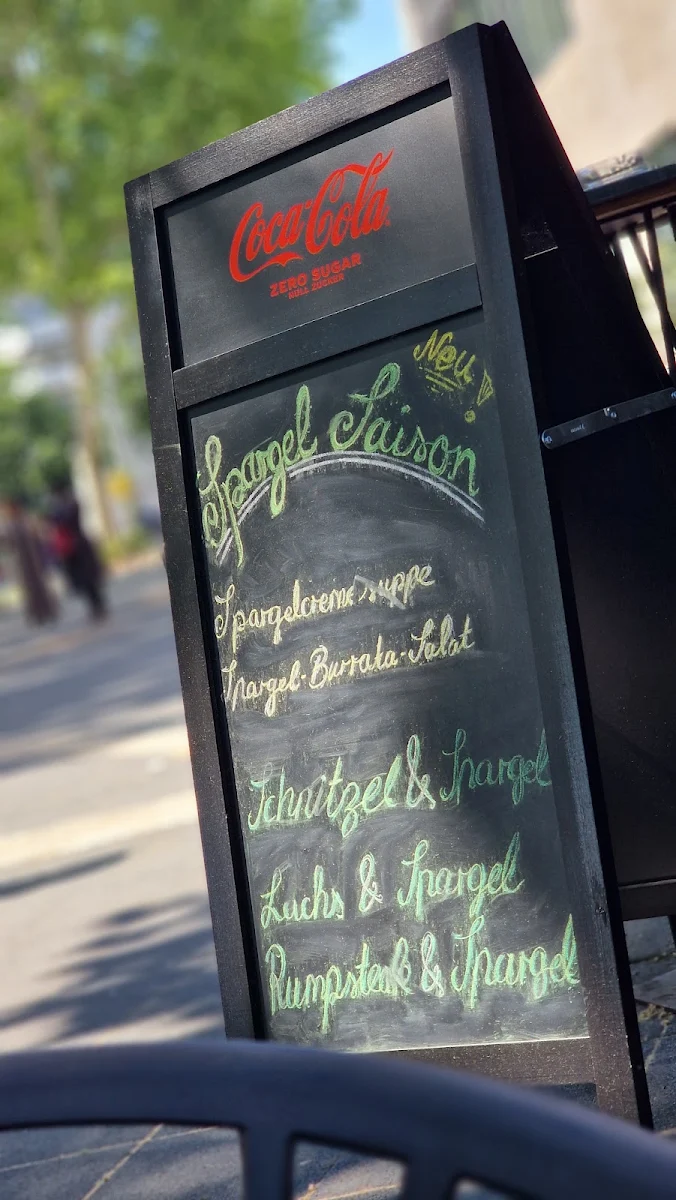 Coca-Cola
ZERO SUGAR
NULL ZUCKER
Neu!
Spargel Saison
Spargelcremesuppe
Spargel-Burrata-Salat
Schnitzel & Spargel
Lachs & Spargel
Rumpsteak & Spargel